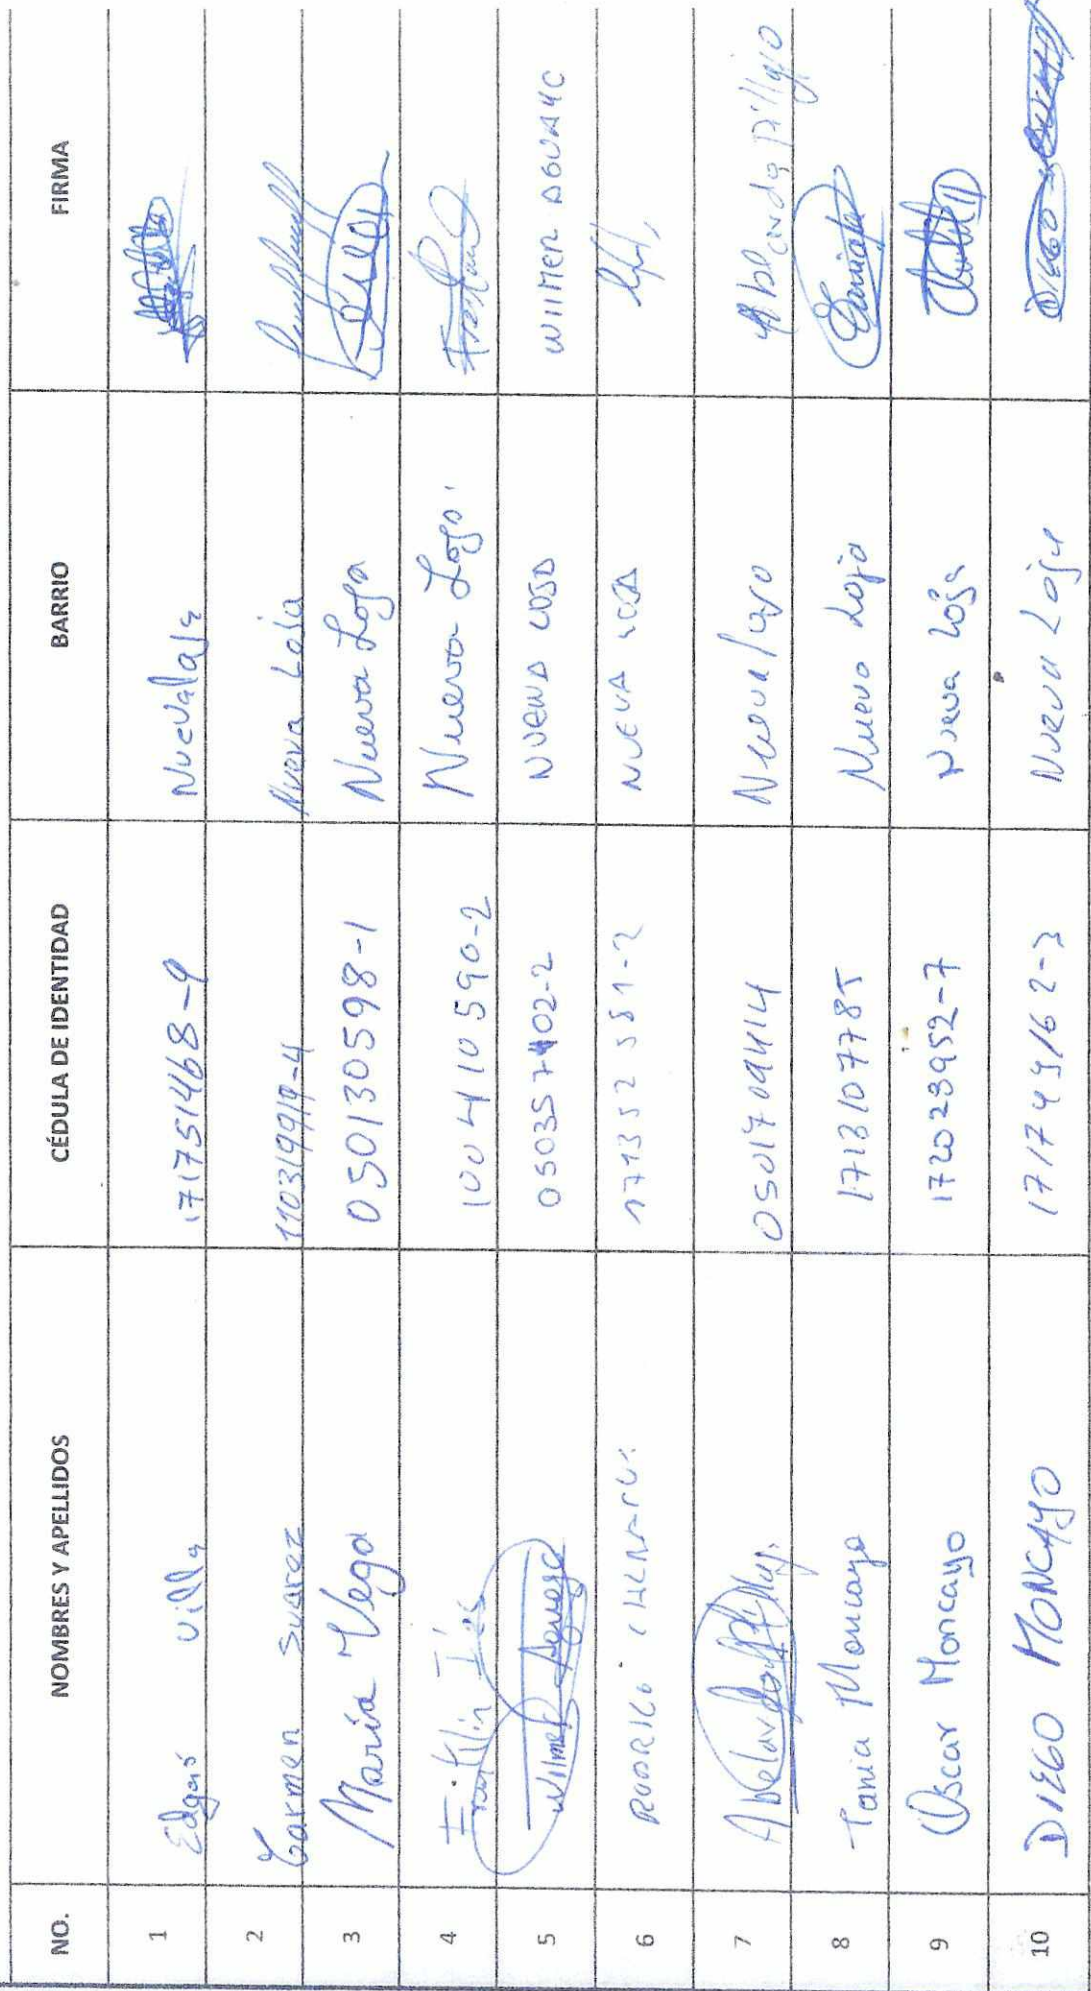 NO. NOMBRES Y APELLIDOS CÉDULA DE IDENTIDAD BARRIO FIRMA
1 Edgar Villa 171751468-9 Nuevaloja
2 Carmen Suarez 110319919-4 Nueva Loja
3 María Vega 050130598-1 Nueva Loja
4 100410590-2 Nueva Loja
5 Wilmer 050357402-2 NUEVA LOJA WILMER
6 RODRIGO 171352581-2 NUEVA LOJA
7 Abelardo 0501709414
8 Tania Moncayo 1713107785 Nueva Loja
9 Oscar Moncayo 172023952-7 Nueva Loja
10 DIEGO MONCAYO 171749162-3 Nueva Loja DIEGO